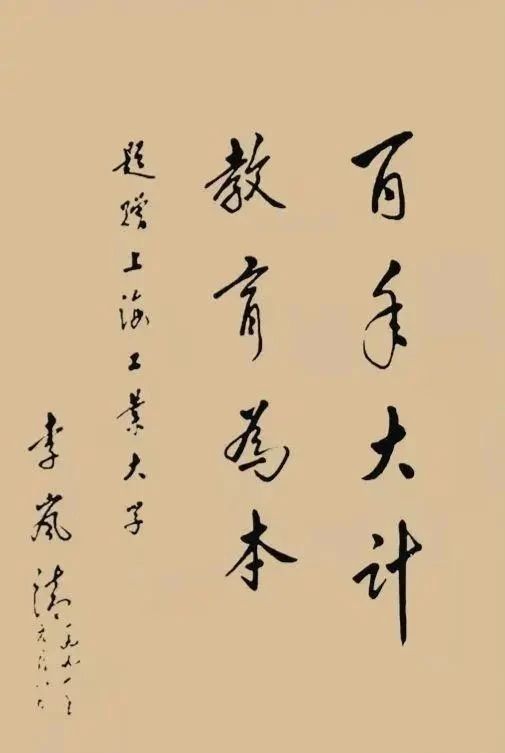 百年大计
教育為本
题赠上海工业大学
李嵐清
一九九一年